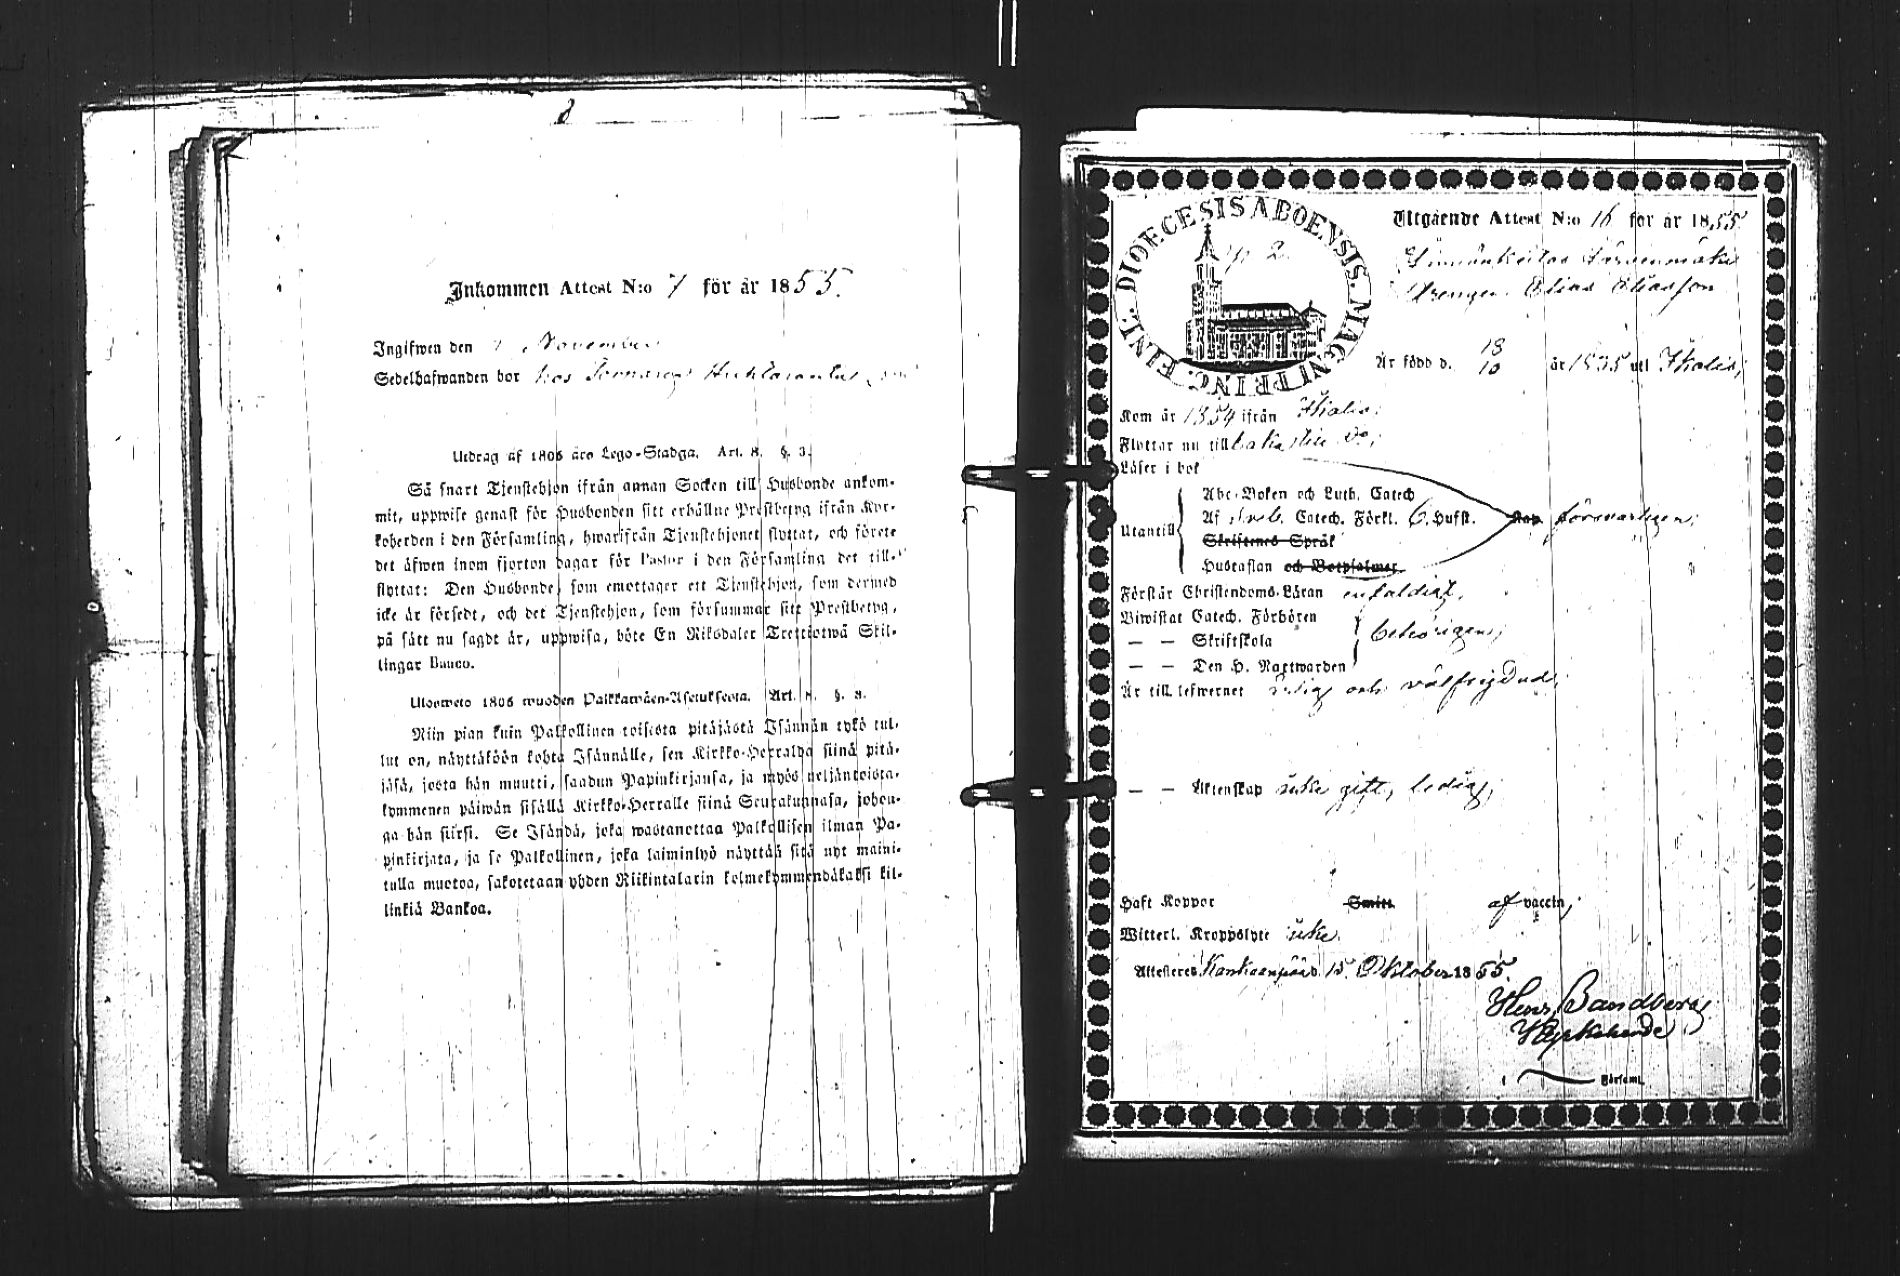 Inkommen Attest N:o 7 för år 1855.
Ingifwen den November
Sedelhafwanden bor hos
Utdrag af 1805 års Lego-Stadga. Art. 8. §. 3.
Så snart Tjenstehjon ifrån annan Socken till Husbonde ankom-
mit, uppwise genast för Husbonden sitt erhållne Prestbetyg ifrån Kyr-
koherden i den Församling, hwarifrån Tjenstehjonet flyttat, och förete
det äfwen inom fjorton dagar för Pastor i den Församling det till-
flyttat: Den Husbonde, som emottager ett Tjenstehjon, som dermed
icke är försedt, och det Tjenstehjon, som försummar sitt Prestbetyg,
på sätt nu sagdt är, uppwisa, böte En Riksdaler Trettiotwå Skil-
lingar Banco.
Ulosweto 1805 wuoden Palkkawäen-Asetuksesta. Art. 8. §. 3.
Niin pian kuin Palkollinen toisesta pitäjästä Isännän tykö tul-
lut on, näyttäköön kohta Isännälle, sen Kirkko-Herralda siinä pitä-
jäsä, josta hän muutti, saadun Papinkirjansa, ja myös neljäntoista-
kymmenen päiwän sisällä Kirkko-Herralle siinä Seurakunnasa, johon-
ga hän siirsi. Se Isändä, joka wastanottaa Palkollisen ilman Pa-
pinkirjata, ja se Palkollinen, joka laiminlyö näyttää sitä nyt maini-
tulla muotoa, sakotetaan yhden Riikintalarin kolmekymmendäkaksi kil-
linkiä Bankoa.
DIOECESIS ABOENSIS. MAGNI PRINC. FINL.
Utgående Attest N:o 16 för år 1855
Drengen Elias Eliasson
Är född d. 18/10 år 1835 uti Ikalis,
Kom år 1854 ifrån Ikalis;
Flyttar nu till
Läser i bok
Abc-Boken och Luth. Catech
Utantill Af Catech. Förkl. 6. Hufst. försvarligen;
Skriftenes Språk
Hustaflan och Botpsalmer
Förstår Christendoms-Läran enfaldigt,
Biwistat Catech. Förhören
— — Skriftskola behörigen;
— — Den H. Nattwarden
Är till lefwernet ärlig och välfrejdad;
— — Äktenskap icke gift, ledig;
Haft Koppor Smitt af vaccin;
Witterl. Kroppslyte icke.
Attesteres Kankaanpää d. 15. Oktober 1855.
Henr. Sandberg
Kyrkoherde
i Församl.